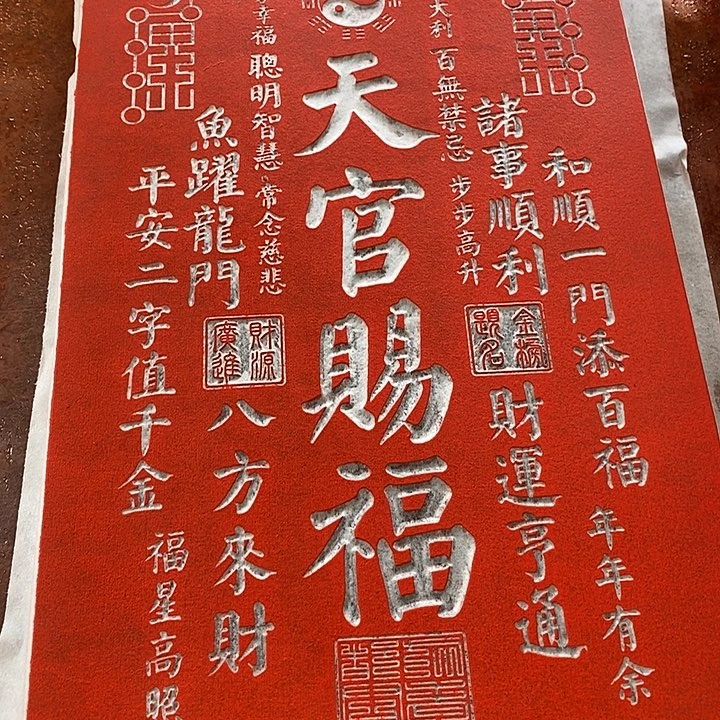 和順一門添百福
年年有余
諸事順利
金榜題名
財運亨通
大利 百無禁忌 步步高升
天官賜福
幸福 聰明智慧 常念慈悲
魚躍龍門
財源廣進
八方來財
平安二字值千金
福星高照